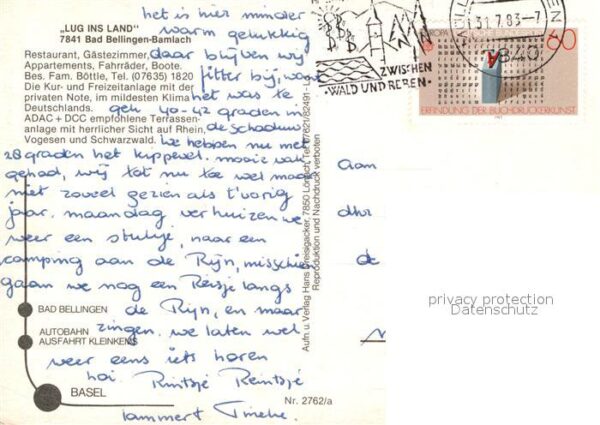 „LUG INS LAND"
7841 Bad Bellingen-Bamlach
Restaurant, Gästezimmer,
Appartements, Fahrräder, Boote.
Bes. Fam. Böttle, Tel. (07635) 1820
Die Kur- und Freizeitanlage mit der
privaten Note, im mildesten Klima
Deutschlands.
ADAC + DCC empfohlene Terrassen-
anlage mit herrlicher Sicht auf Rhein,
Vogesen und Schwarzwald.
het is hier minder
warm gelukkig
daar blijven wij
fitter bij, want
het was te
40-42 graden in
de schaduw
we hebben nu met
28 graden het mooie van
gehad, wij tot nu toe wel maar
niet zoveel gezien als t'vorig
jaar. maandag verhuizen we
weer een stukje, naar een
camping aan de Rijn, misschien
gaan we nog een Reisje langs
de Rijn, en maar
zingen. we laten wel
weer eens iets horen
hoi Rintsje Reintsje
lammert Tineke
BAD BELLINGEN
AUTOBAHN
AUSFAHRT KLEINKEMS
BASEL
Nr. 2762/a
Aufn. u. Verlag Hans Dreisigacker, 7850 Lörrach, Tel. 07621/82491-L
Reproduktion und Nachdruck verboten
ZWISCHEN
WALD UND REBEN
31.7.83-7
7840
60
ERFINDUNG DER BUCHDRUCKERKUNST
aan
dhr
de
privacy protection
Datenschutz